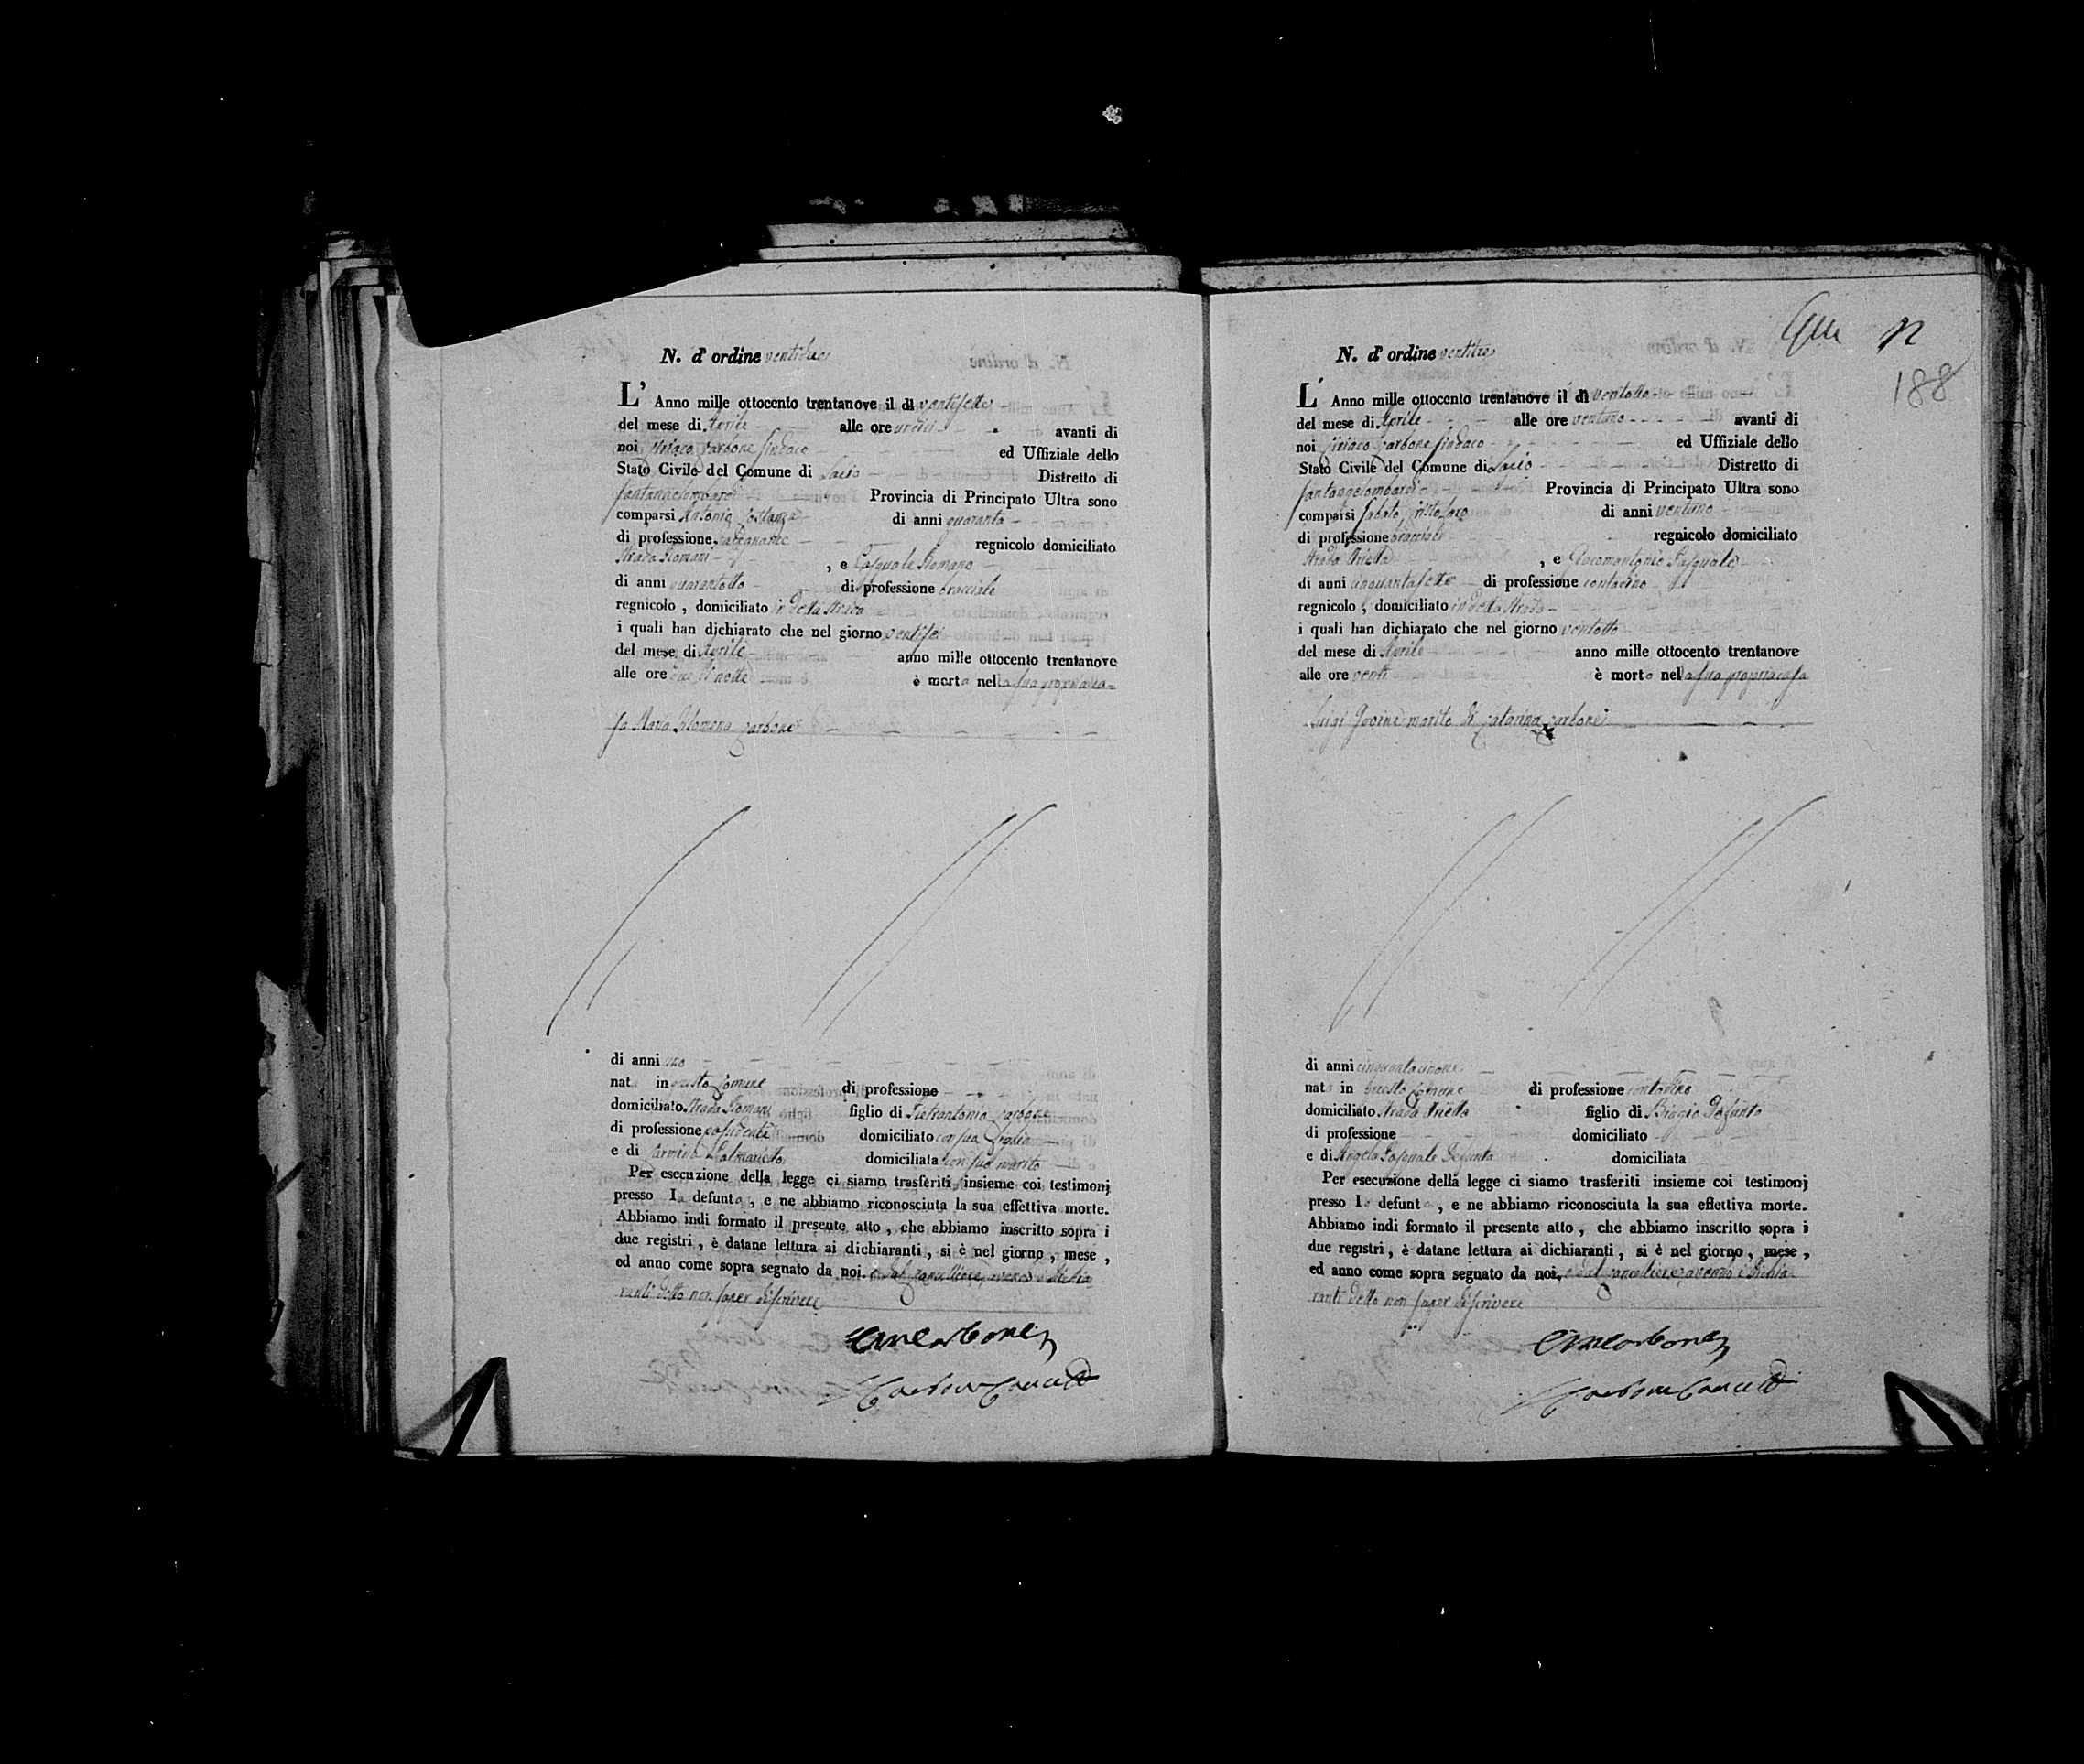 N. d' ordine ventidue
L' Anno mille ottocento trentanove il dì ventisette
del mese di Aprile alle ore undici avanti di
noi Ciriaco Carbone Sindaco ed Uffiziale dello
Stato Civile del Comune di Distretto di
Provincia di Principato Ultra sono
comparsi Antonio di anni quaranta
di professione regnicolo domiciliato
Strada Romani , e Pasquale Romano
di anni quarantotto di professione bracciale
regnicolo , domiciliato in detta Strada
i quali han dichiarato che nel giorno
del mese di Aprile anno mille ottocento trentanove
alle ore due di notte è morta nella sua propria ca=
sa Maria Filomena Carbone
di anni uno
nat in questo Comune di professione
domiciliato Strada Romani figlio di Pietrantonio Carbone
di professione possidente domiciliato con sua figlia
e di domiciliata con suo marito
Per esecuzione della legge ci siamo trasferiti insieme coi testimonj
presso la defunta , e ne abbiamo riconosciuta la sua effettiva morte.
Abbiamo indi formato il presente atto , che abbiamo inscritto sopra i
due registri , è datane lettura ai dichiaranti , si è nel giorno , mese ,
ed anno come sopra segnato da noi. e dal Cancelliere, avendo i dichia
ranti detto non saper di scrivere
N. d' ordine ventitre
188
L' Anno mille ottocento trentanove il dì ventotto
del mese di Aprile alle ore ventuno avanti di
noi Ciriaco Carbone Sindaco ed Uffiziale dello
Stato Civile del Comune di Distretto di
Santangelolombardi Provincia di Principato Ultra sono
comparsi Sabato Cristofaro di anni ventuno
di professione bracciale regnicolo domiciliato
Strada , e Giacomantonio Pasquale
di anni cinquantasette di professione contadino
regnicolo , domiciliato in detta Strada
i quali han dichiarato che nel giorno ventotto
del mese di Aprile anno mille ottocento trentanove
alle ore venti è morto nella sua propria casa
Luigi Iovine marito di Catarina Carbone
di anni cinquantacinque
nato in questo Comune di professione contadino
domiciliato Strada figlio di Biaggio Defunto
di professione domiciliato
e di Angela Pasquale Defunta domiciliata
Per esecuzione della legge ci siamo trasferiti insieme coi testimonj
presso lo defunto , e ne abbiamo riconosciuta la sua effettiva morte.
Abbiamo indi formato il presente atto , che abbiamo inscritto sopra i
due registri , è datane lettura ai dichiaranti , si è nel giorno , mese ,
ed anno come sopra segnato da noi. e dal Cancelliere, avendo i dichia
ranti detto non saper di scrivere